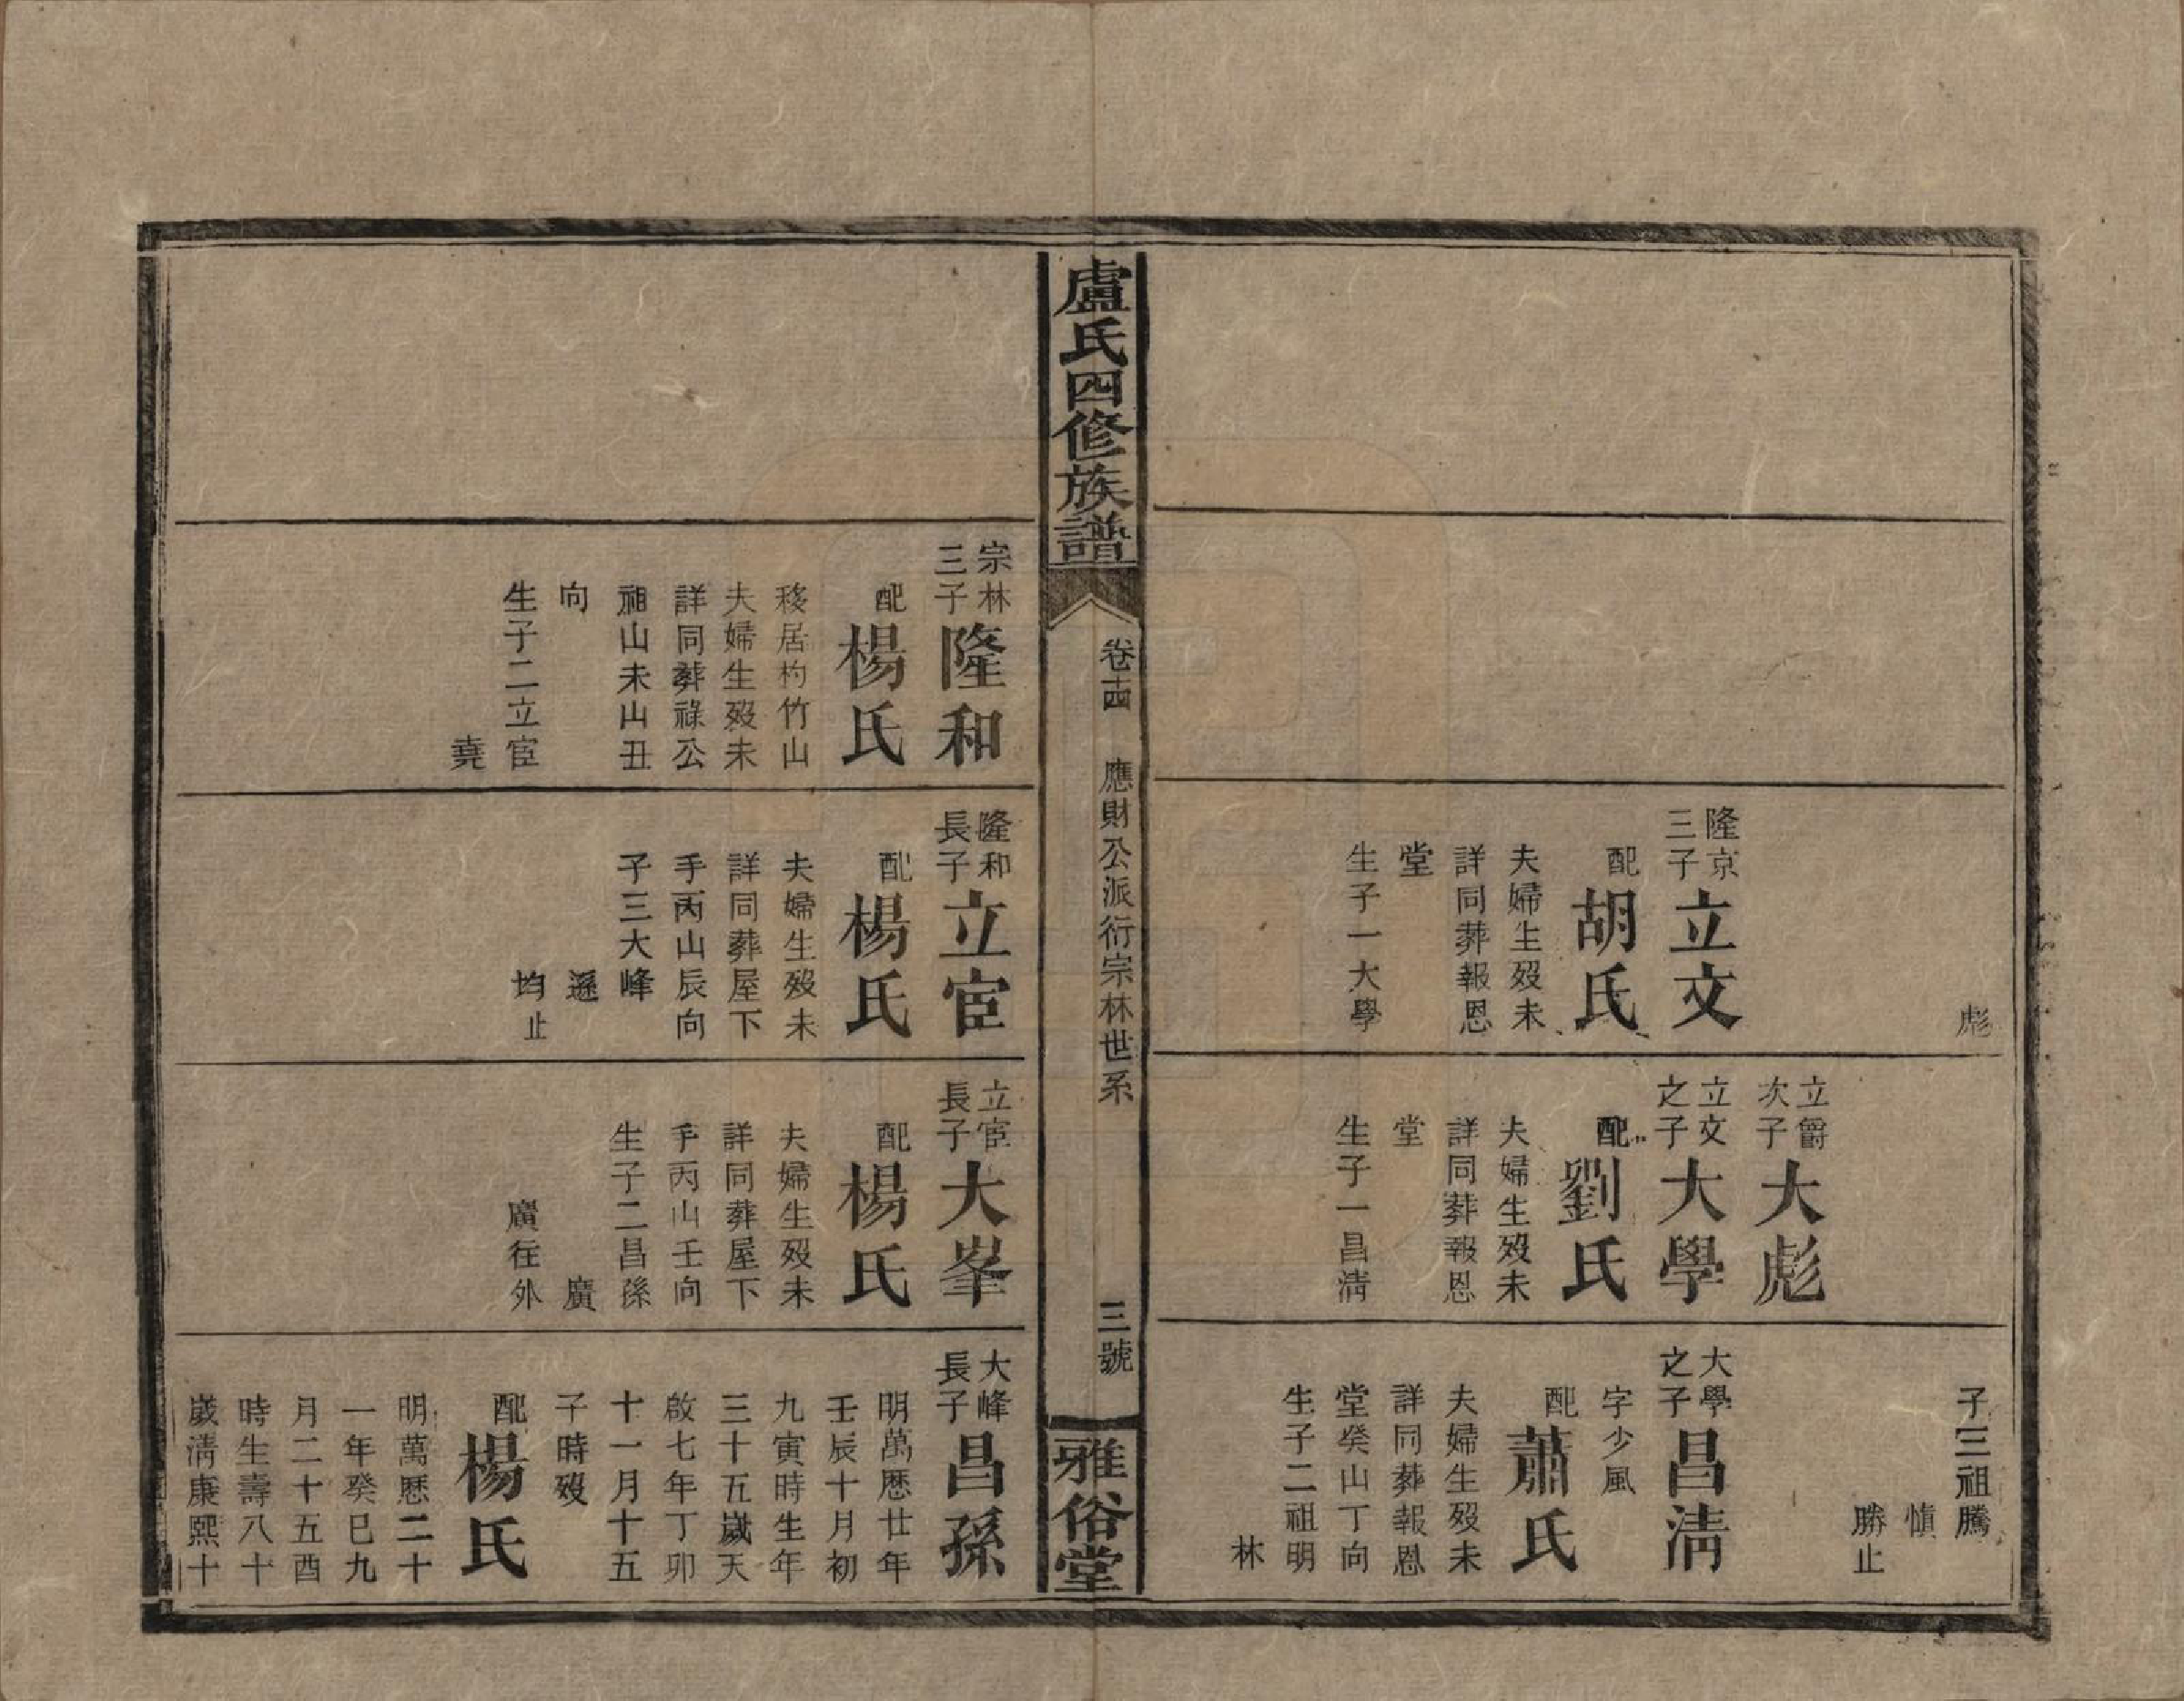 彪
隆京
三子
立文
配
胡氏
夫婦生歿未
詳同葬報恩
堂
生子一大學
立爵
次子
大彪
立文
之子
大學
配
劉氏
夫婦生歿未
詳同葬報恩
堂
生子一昌清
子三祖騰
慎
勝止
大學
之子
昌清
字少風
配
蕭氏
夫婦生歿未
詳同葬報恩
堂癸山丁向
生子二祖明
林
盧氏四修族譜
卷十四
應財公派衍宗林世系
三號
雅俗堂
宗林
三子
隆和
配
楊氏
移居杓竹山
夫婦生歿未
詳同葬祿公
祖山未山丑
向
生子二立宦
堯
隆和
長子
立宦
配
楊氏
夫婦生歿未
詳同葬屋下
手丙山辰向
子三大峰
遜
均止
立宦
長子
大峯
配
楊氏
夫婦生歿未
詳同葬屋下
手丙山壬向
生子二昌孫
廣
廣往外
大峰
長子
昌孫
明萬厯廿年
壬辰十月初
九寅時生年
三十五歲天
啟七年丁卯
十一月十五
子時歿
配
楊氏
明萬厯二十
一年癸巳九
月二十五酉
時生壽八十
歲清康熙十